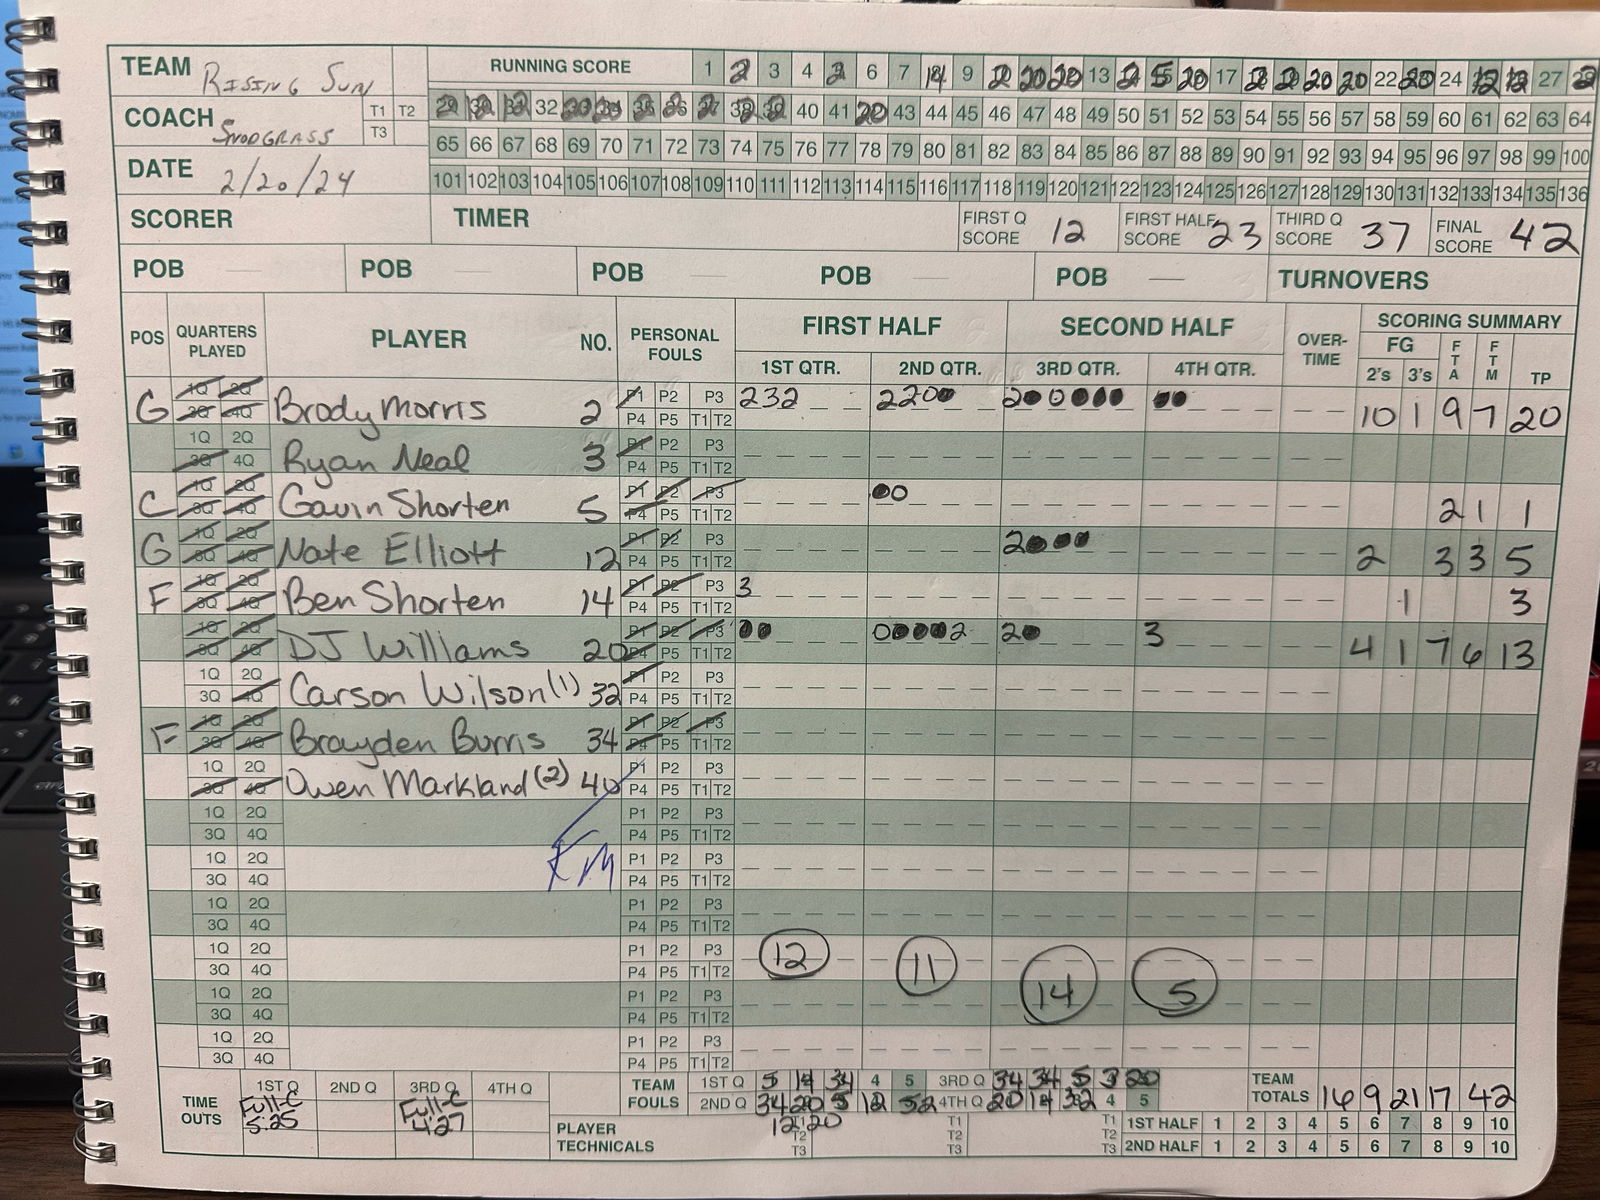 TEAM Rising Sun
RUNNING SCORE 1 2 3 4 2 6 7 14 9 12 20 20 13 12 5 20 17 12 12 20 20 22 20 24 12 12 27
COACH Snodgrass T1 T2 T3
32 40 41 20 43 44 45 46 47 48 49 50 51 52 53 54 55 56 57 58 59 60 61 62 63 64
65 66 67 68 69 70 71 72 73 74 75 76 77 78 79 80 81 82 83 84 85 86 87 88 89 90 91 92 93 94 95 96 97 98 99 100
DATE 2/20/24
101 102 103 104 105 106 107 108 109 110 111 112 113 114 115 116 117 118 119 120 121 122 123 124 125 126 127 128 129 130 131 132 133 134 135 136
SCORER TIMER FIRST Q SCORE 12 FIRST HALF SCORE 23 THIRD Q SCORE 37 FINAL SCORE 42
POB POB POB POB POB TURNOVERS
POS QUARTERS PLAYED PLAYER NO. PERSONAL FOULS FIRST HALF SECOND HALF OVER-TIME SCORING SUMMARY
1ST QTR. 2ND QTR. 3RD QTR. 4TH QTR. FG 2's 3's FTA FTM TP
G 1Q 2Q Brody Morris 2 P1 P2 P3 232 220 2 10 1 9 7 20
3Q 4Q P4 P5 T1 T2
1Q 2Q Ryan Neal 3 P1 P2 P3
3Q 4Q P4 P5 T1 T2
C 1Q 2Q Gavin Shorten 5 P1 P2 P3 0 2 1 1
3Q 4Q P4 P5 T1 T2
G 1Q 2Q Nate Elliott 12 P1 P2 P3 2 2 3 3 5
3Q 4Q P4 P5 T1 T2
F 1Q 2Q Ben Shorten 14 P1 P2 P3 3 1 3
3Q 4Q P4 P5 T1 T2
1Q 2Q DJ Williams 20 P1 P2 P3 0 2 2 3 4 1 7 6 13
3Q 4Q P4 P5 T1 T2
1Q 2Q Carson Wilson (1) 32 P1
3Q 4Q P4 P5 T1 T2
F 1Q 2Q Brayden Burris 34 P1 P2 P3
3Q 4Q P4 P5 T1 T2
1Q 2Q Owen Markland (2) 40 P1 P2 P3
3Q 4Q P4 P5 T1 T2
1Q 2Q P1 P2 P3
3Q 4Q P4 P5 T1 T2
1Q 2Q P1 P2 P3
3Q 4Q P4 P5 T1 T2
1Q 2Q P1 P2 P3
3Q 4Q P4 P5 T1 T2
1Q 2Q P1 P2 P3 12 11
3Q 4Q P4 P5 T1 T2
1Q 2Q P1 P2 P3 14 5
3Q 4Q P4 P5 T1 T2
1Q 2Q P1 P2 P3
3Q 4Q P4 P5 T1 T2
TIME OUTS 1ST Q Full-C 5:25 2ND Q 3RD Q Full-C 4:27 4TH Q
TEAM FOULS 1ST Q 5 14 34 4 5 3RD Q 34 34 5 3 20
2ND Q 34 20 5 12 4TH Q 20 14 32 4 5
12 20
TEAM TOTALS 16 9 21 17 42
PLAYER TECHNICALS T2 T3 T1 T2 T3 T1 T2 T3
1ST HALF 1 2 3 4 5 6 7 8 9 10
2ND HALF 1 2 3 4 5 6 7 8 9 10